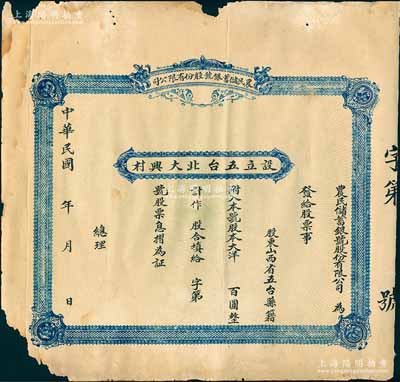 上海阳明拍卖
農民儲蓄銀號股份有限公司
設立五台北大興村
農民儲蓄銀號股份有限公司為
發給股票事
股東山西省五台縣籍
附入本號股本大洋 百圓整
計作 股合填給 字第
號股票息摺為証
總理
中華民國 年 月 日
字第 號
上海阳明拍卖